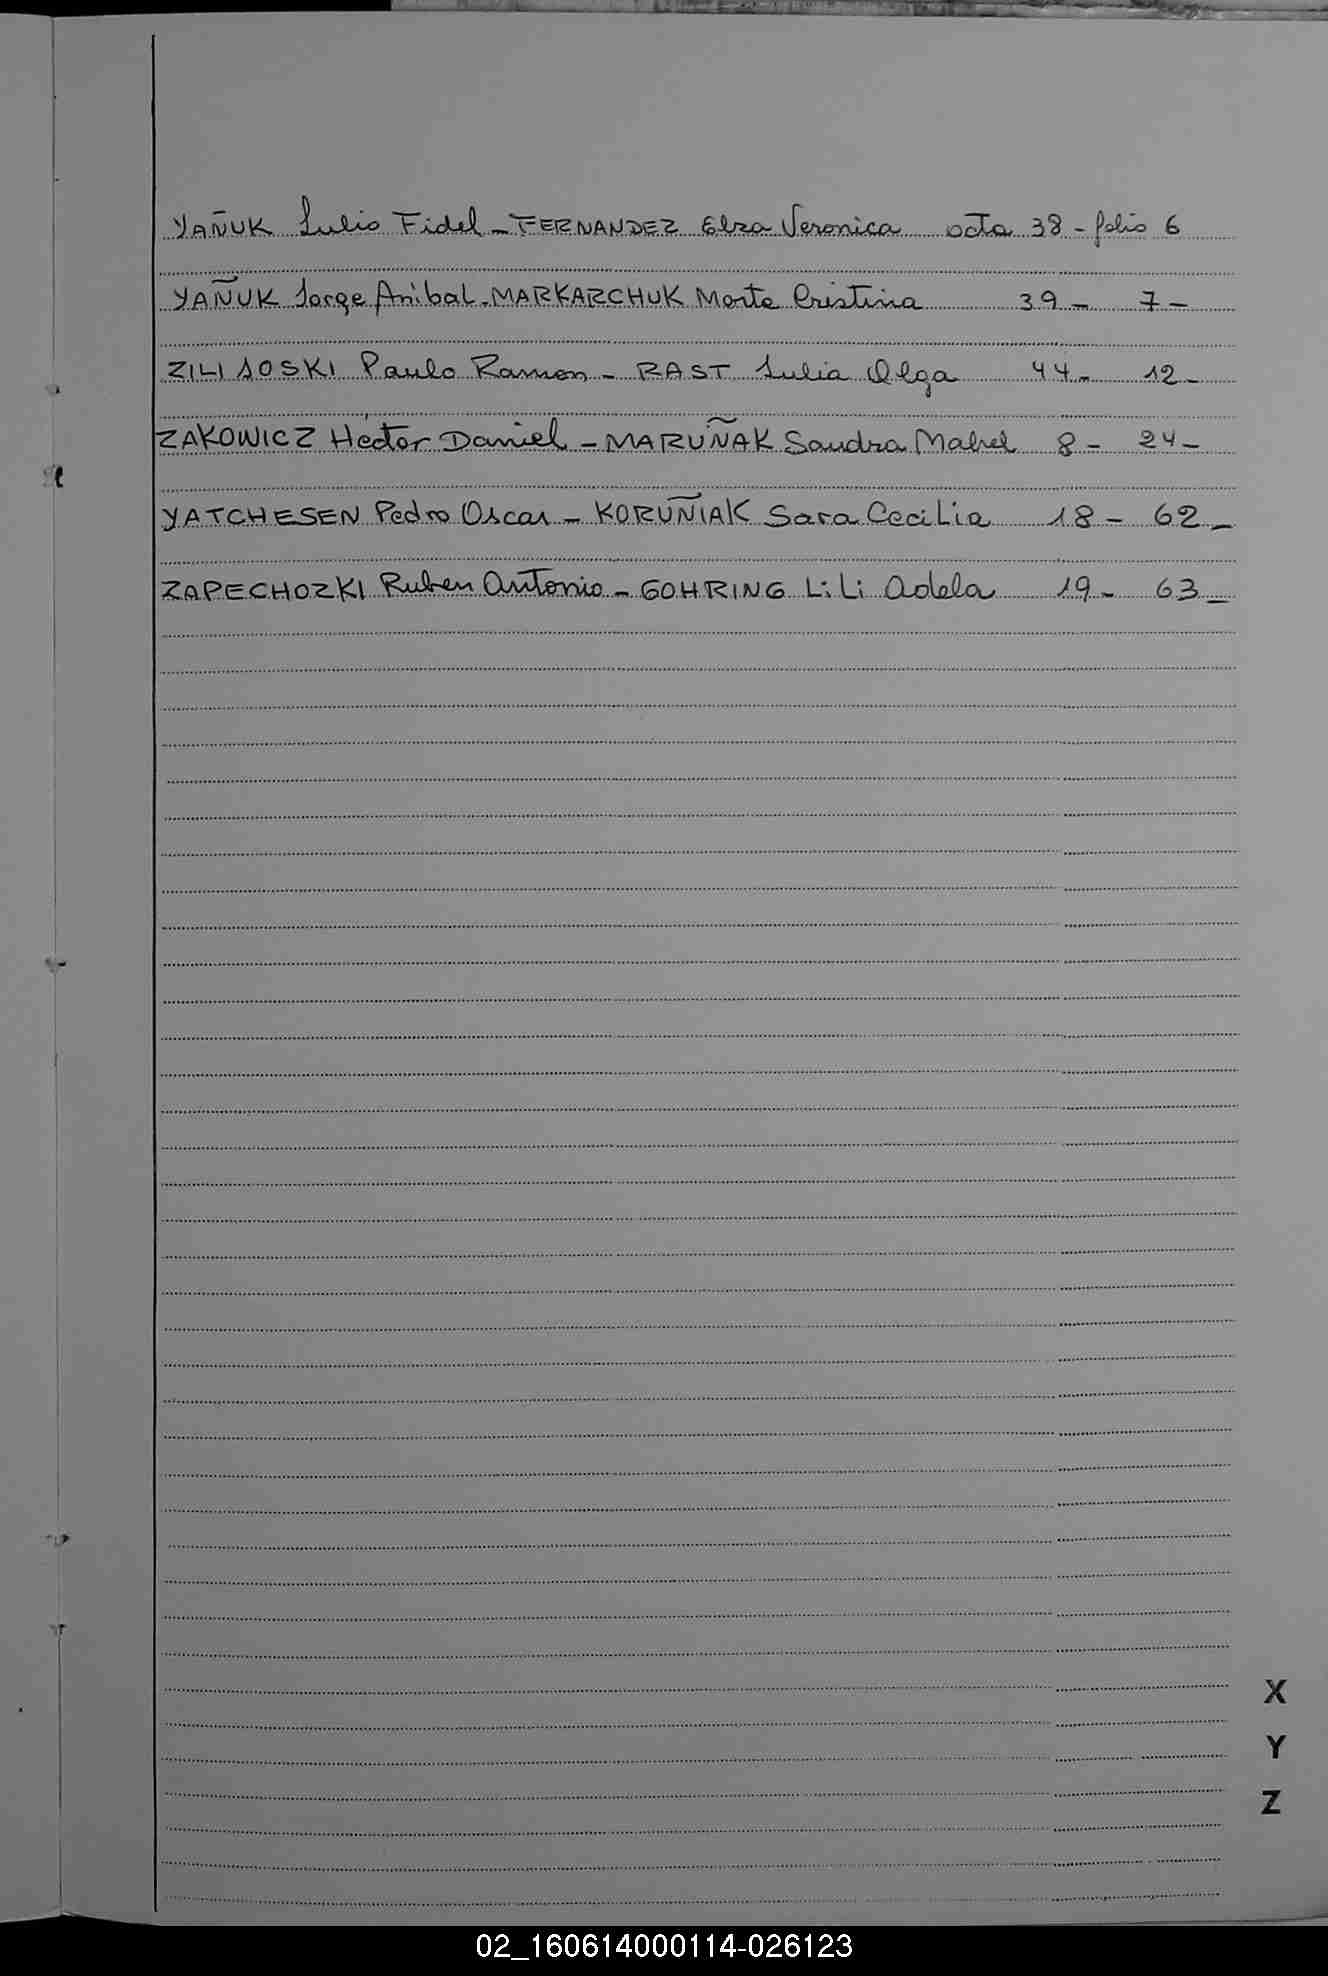 YAÑUK Julio Fidel - FERNANDEZ Elza Veronica acta 38 - folio 6
YAÑUK Jorge Anibal - MARKARCHUK Marta Cristina 39 - 7 -
ZILI JOSKI Paulo Ramon - RAST Julia Olga 44 - 12 -
ZAKOWICZ Héctor Daniel - MARUÑAK Sandra Mabel 8 - 24 -
YATCHESEN Pedro Oscar - KORUÑIAK Sara Cecilia 18 - 62 -
ZAPECHOZKI Ruben Antonio - GOHRING LiLi Adela 19 - 63 -
X
Y
Z
02_160614000114-026123